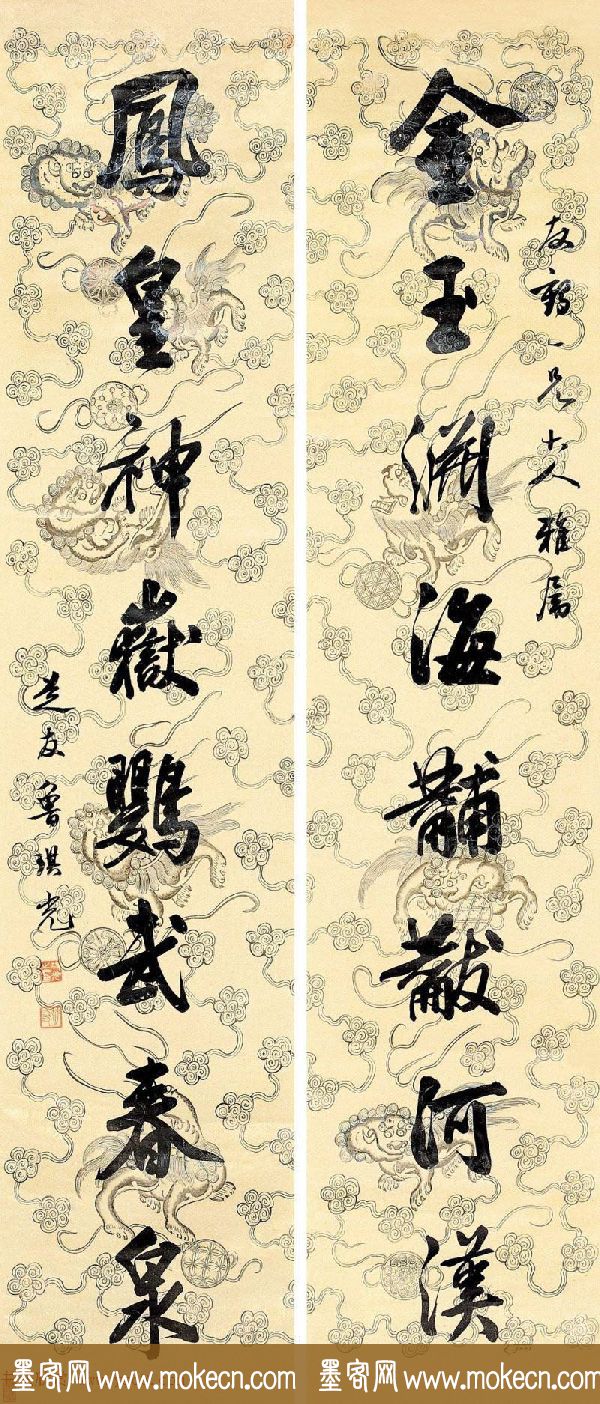 金玉淵海黼黻河漢
友鶴一兄大人雅屬
鳳皇神嶽鸚武春泉
芝友魯琪光
墨客网 www.mokecn.com
墨客网 www.mokecn.com